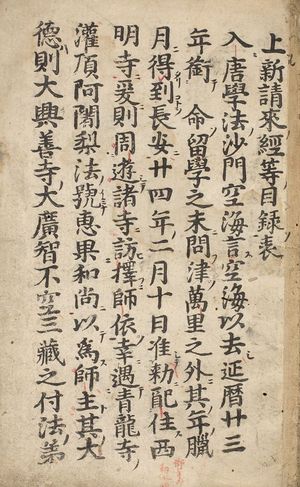 上新請來經等目録表
入唐學法沙門空海言空海以去延曆廿三
年銜 命留學之末問津萬里之外其年臘
月得到長安廿四年二月十日准勅配住西
明寺爰則周遊諸寺訪擇師依幸遇青龍寺
灌頂阿闍梨法號惠果和尚以為師主其大
德則大興善寺大廣智不空三藏之付法弟